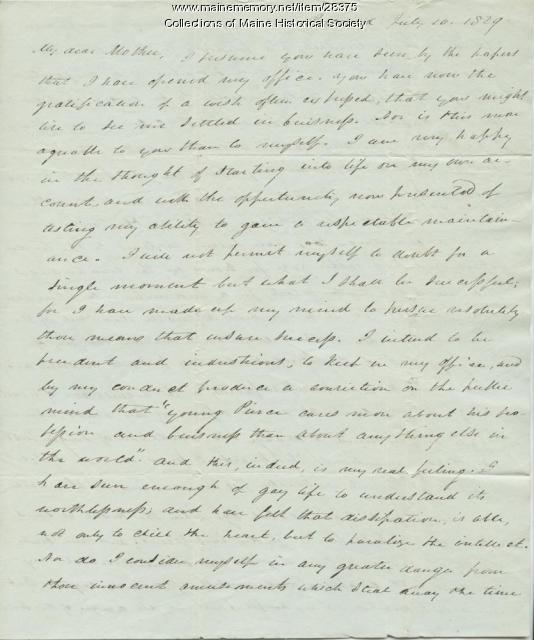 www.mainememory.net/item/28375
Collections of Maine Historical Society
July 10. 1829
My dear Mother, I presume you have seen by the papers
that I have opened my office. you have now the
gratification of a wish often expressed, that you might
live to see me settled in buisness. Nor is this more
agreable to you than to myself. I am very happy
in the thought of starting into life on my own ac-
count and with the opportunity now presented of
testing my ability to gain a respectable maintain-
ance. I will not permit myself to doubt for a
single moment but what I shall be successful;
for I have made up my mind to pursue resolutely
those means that insure success. I intend to be
prudent and industrious, to keep in my office, and
by my conduct produce a conviction on the public
mind that "young Pierce cares more about his pro-
fession and buisness than about any thing else in
the world" and this, indeed, is my real feeling. I
have seen enough of gay life to understand its
worthlessness; and have felt that dissipation, is able,
not only to chill the heart, but to paralize the intellect.
Nor do I consider myself in any greater danger from
those innocent amusements which steal away the time